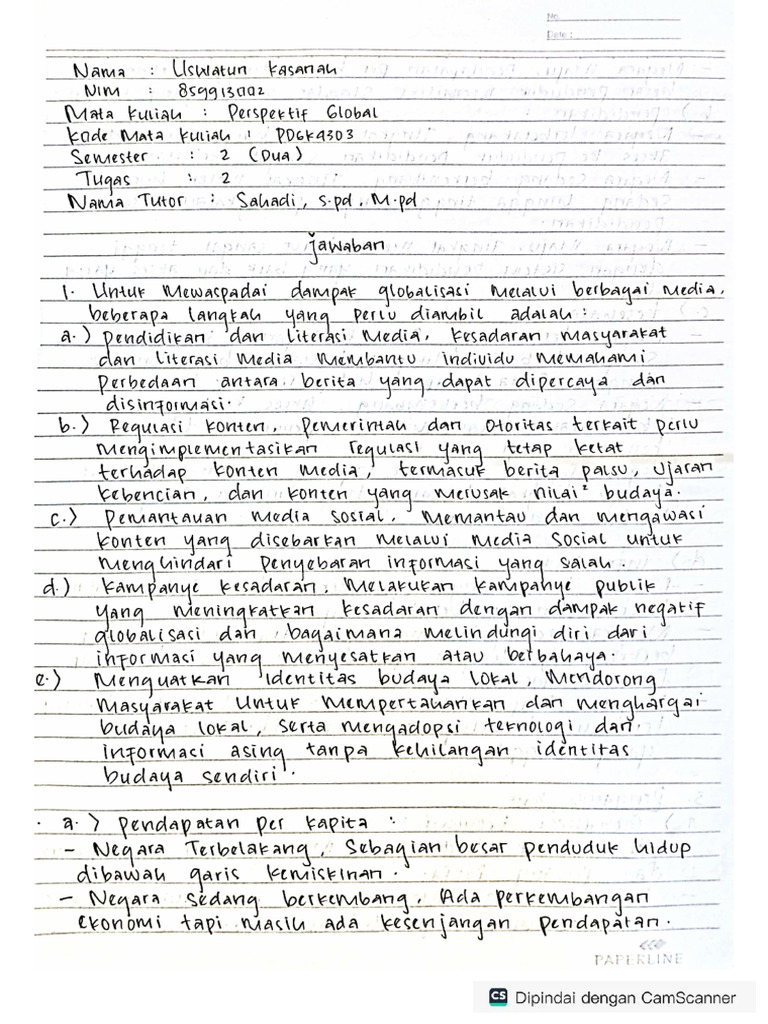 No.
Date :
Nama : Uswatun Kasanah
NIM : 859913002
Mata Kuliah : Perspektif Global
Kode Mata Kuliah : PDGK4303
Semester : 2 (Dua)
Tugas : 2
Nama Tutor : Sahadi, S.pd, M.pd
Jawaban
1. Untuk Mewaspadai dampak globalisasi Melalui berbagai Media,
beberapa langkah yang perlu diambil adalah :
a.) Pendidikan dan Literasi Media, Kesadaran masyarakat
dan Literasi Media Membantu individu Memahami
Perbedaan antara berita yang dapat dipercaya dan
disinformasi.
b.) Regulasi Konten, Pemerintah dan Otoritas terkait perlu
Mengimplementasikan regulasi yang tetap ketat
terhadap konten Media, termasuk berita palsu, ujaran
Kebencian, dan konten yang merusak nilai² budaya.
c.) Pemantauan Media Sosial. Memantau dan mengawasi
Konten yang disebarkan Melalui Media Sosial untuk
Menghindari Penyebaran informasi yang salah.
d.) Kampanye Kesadaran. Melakukan Kampanye publik
yang meningkatkan kesadaran dengan dampak negatif
globalisasi dan bagaimana melindungi diri dari
informasi yang menyesatkan atau berbahaya.
e.) Menguatkan Identitas budaya lokal, Mendorong
Masyarakat Untuk Mempertahankan dan menghargai
budaya lokal, serta mengadopsi teknologi dan
informaci asing tanpa kehilangan identitas
budaya sendiri.
. a.) Pendapatan Per Kapita :
- Negara Terbelakang, Sebagian besar penduduk hidup
dibawah garis kemiskinan.
- Negara sedang berkembang, Ada perkembangan
ekonomi tapi masih ada kesenjangan pendapatan.
PAPERLINE
CS Dipindai dengan CamScanner